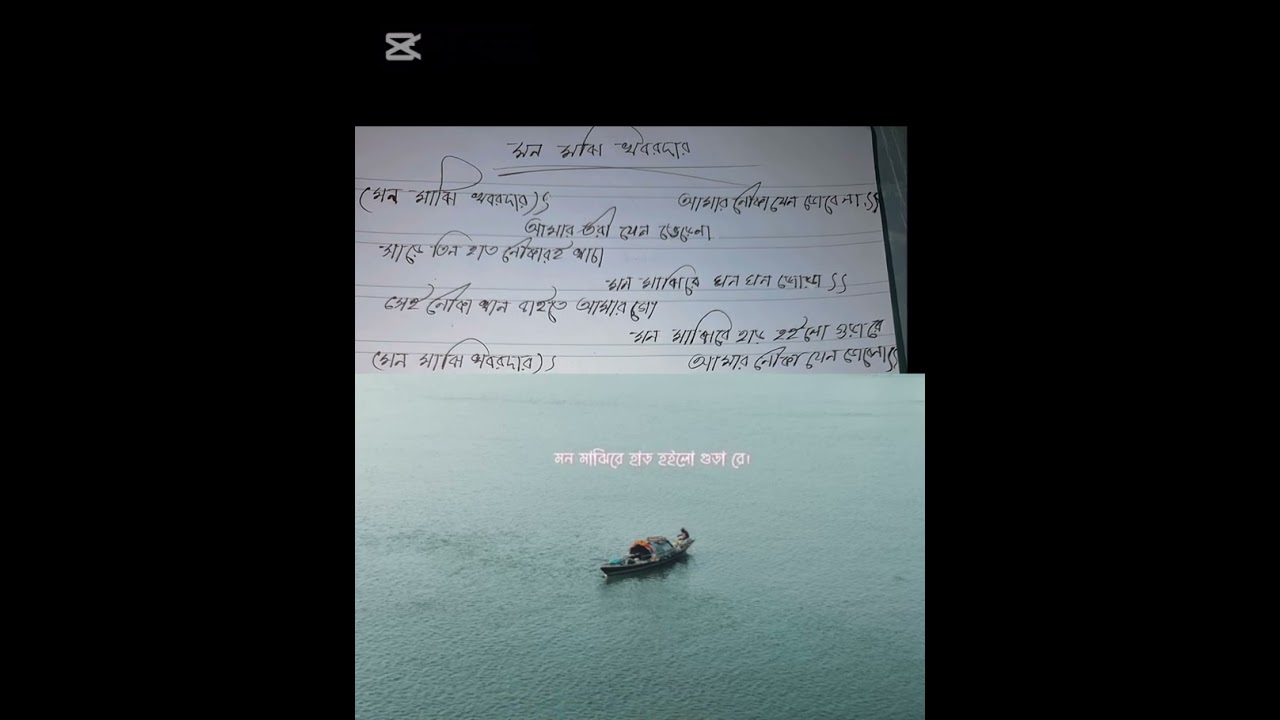 মন মাঝি খবরদার
(মন মাঝি খবরদার)SS আমার নৌকা যেন ডোবে না SS
আমার তরী যেন ভেড়েনা
সাড়ে তিন হাত নৌকারই খাচা
মন মাঝিরে ঘন ঘন জোড়া SS
সেই নৌকা খান বাইতে আমার গো
মন মাঝিরে হাড় হইলো গুড়া রে
(মন মাঝি খবরদার)S আমার নৌকা যেন ডোবেনা SS
মন মাঝিরে হাড় হইলো গুড়া রে।